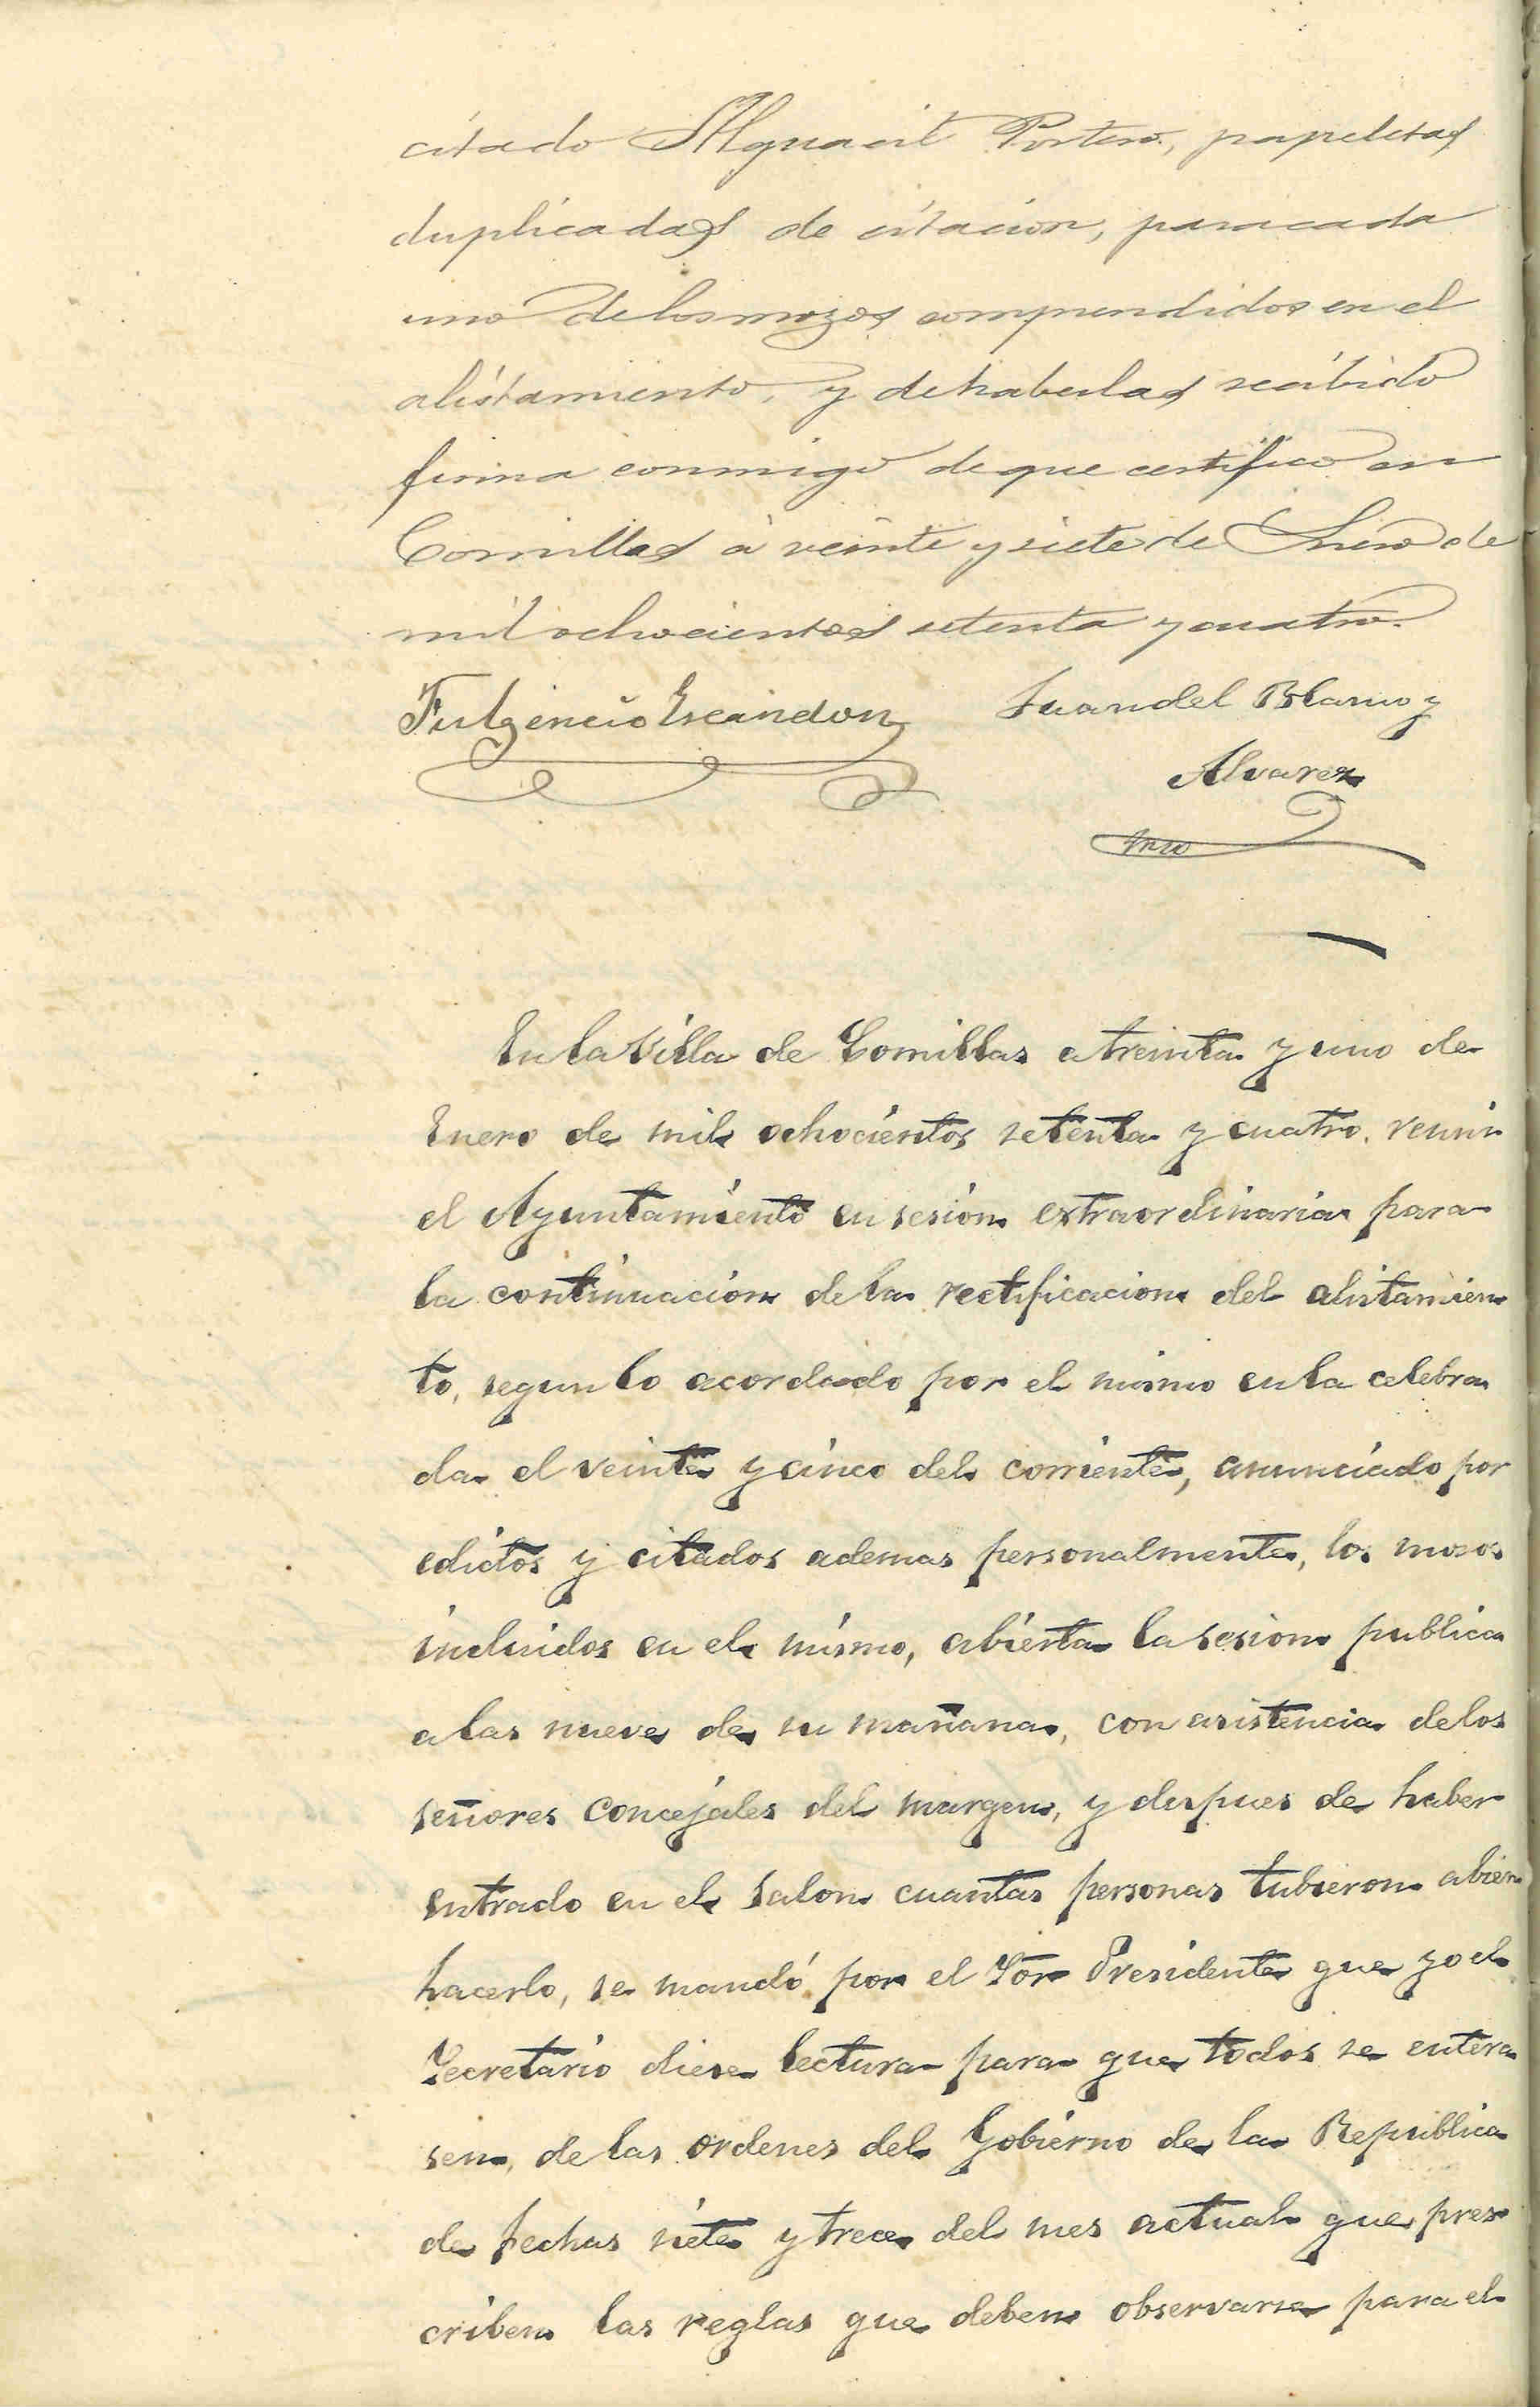 citado Alguacil Portero, papeletas
duplicadas de citacion, para cada
uno de los mozos comprendidos en el
alistamiento, y de haberlas recibido
firma conmigo de que certifico en
Comillas á veinte y siete de Enero de
mil ochocientos setenta y cuatro.
Fulgencio Escandon Juan del Blanco y
Alvarez
Srio
En la Villa de Comillas a treinta y uno de
Enero de mil ochocientos setenta y cuatro, reunido
el Ayuntamiento en sesion extraordinaria para
la continuacion de la rectificacion del alistamien
to, segun lo acordado por el mismo en la celebra
da el veinte y cinco del corriente, anunciado por
edictos y citados ademas personalmente, los mozos
incluidos en el mismo, abierta la sesion publica
a las nueve de su mañana, con asistencia de los
señores concejales del margen, y despues de haber
entrado en el salon cuantas personas tubieron abien
hacerlo, se mandó por el Sor Presidente que yo el
Secretario diese lectura para que todos se entera
sen, de las ordenes del Gobierno de la Republica
de fechas siete y trece del mes actual que pres
criben las reglas que deben observarse para el